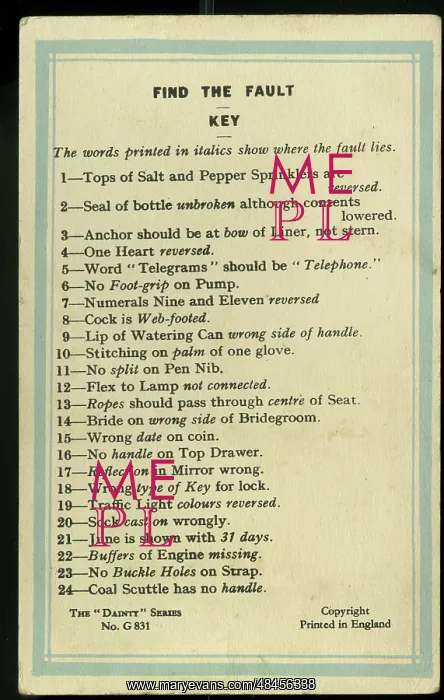 FIND THE FAULT
KEY
The words printed in italics show where the fault lies.
1—Tops of Salt and Pepper Sprinklers are
reversed.
2—Seal of bottle unbroken although contents
lowered.
3—Anchor should be at bow of Liner, not stern.
4—One Heart reversed.
5—Word "Telegrams" should be "Telephone."
6—No Foot-grip on Pump.
7—Numerals Nine and Eleven reversed
8—Cock is Web-footed.
9—Lip of Watering Can wrong side of handle.
10—Stitching on palm of one glove.
11—No split on Pen Nib.
12—Flex to Lamp not connected.
13—Ropes should pass through centre of Seat.
14—Bride on wrong side of Bridegroom.
15—Wrong date on coin.
16—No handle on Top Drawer.
17—Reflection in Mirror wrong.
18—Wrong type of Key for lock.
19—Traffic Light colours reversed.
20—Sock cast on wrongly.
21—June is shown with 31 days.
22—Buffers of Engine missing.
23—No Buckle Holes on Strap.
24—Coal Scuttle has no handle.
THE "DAINTY" SERIES
No. G 831
Copyright
Printed in England
ME
PL
ME
PL
www.maryevans.com/48456338